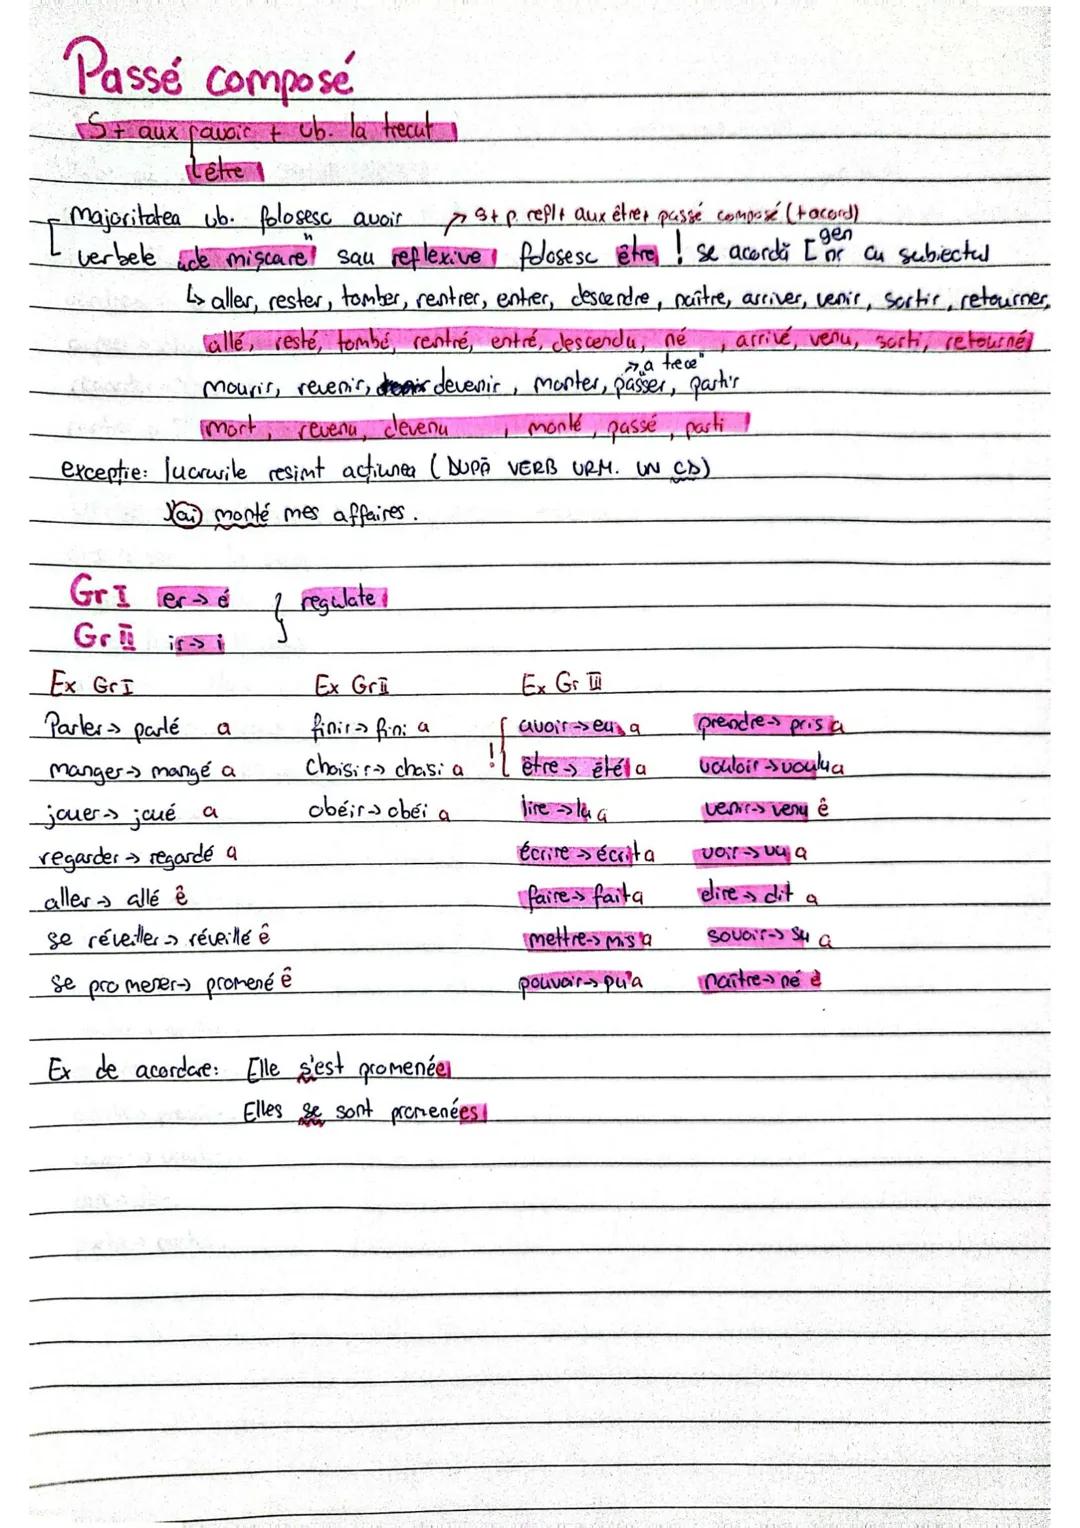 Passé composé
S + aux [avoir + vb. la trecut
[être
Majoritatea vb. folosesc avoir → S + p. refl + aux être + passé composé (+acord)
verbele „de mișcare" sau reflexive folosesc être ! se acordă [gen nr cu subiectul
↳ aller, rester, tomber, rentrer, entrer, descendre, naître, arriver, venir, sortir, retourner,
allé, resté, tombé, rentré, entré, descendu, né, arrivé, venu, sorti, retourné
→ „a trece"
mourir, revenir, devenir, monter, passer, partir
mort, revenu, devenu, monté, passé, parti
excepție: lucrurile resimt acțiunea (DUPĂ VERB URM. UN CD)
J'ai monté mes affaires.
Gr I er → é } regulate
Gr II ir → i
Ex Gr I Ex Gr II Ex Gr III
Parler → parlé a finir → fini a ! [ avoir → eu a prendre → pris a
manger → mangé a choisir → choisi a être → été a vouloir → voulu a
jouer → joué a obéir → obéi a lire → lu a venir → venu ê
regarder → regardé a écrire → écrit a voir → vu a
aller → allé ê faire → fait a dire → dit a
se réveiller → réveillé ê mettre → mis a savoir → su a
se promener → promené ê pouvoir → pu a naître → né ê
Ex de acordare: Elle s'est promenée
Elles se sont promenées